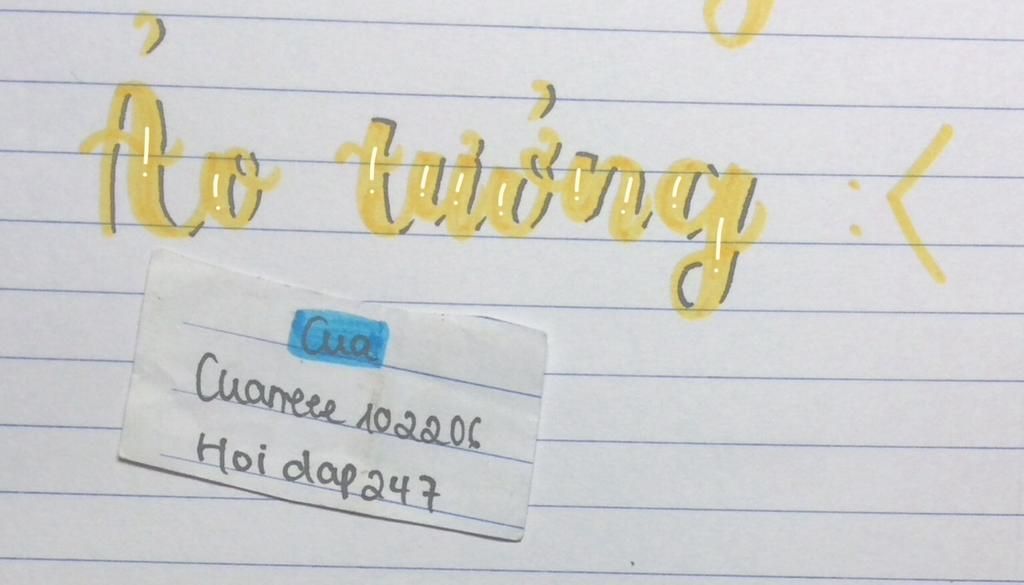 Ảo tưởng :<
Cua
Cuarreee 102206
Hoi dap 247